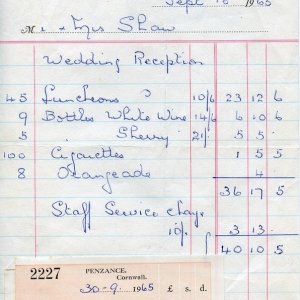 Sept 16 1965
M r & Mrs Shaw
Wedding Reception
45 Luncheons 10/6 23 12 6
9 Bottles White Wine 14/6 6 10 6
5 " Sherry 21/- 5 5
100 Cigarettes 1 5 5
8 Orangeade 4
36 17 5
Staff Service Chage
10% 3 13
40 10 5
2227 PENZANCE, Cornwall.
30-9 1965 £ s. d.